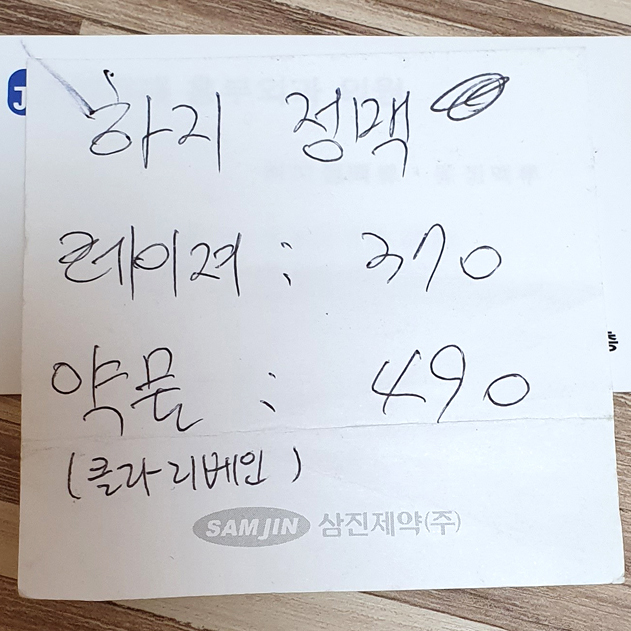 하지 정맥
레이져 : 370
약물 : 490
(클라리베인)
SAMJIN 삼진제약(주)